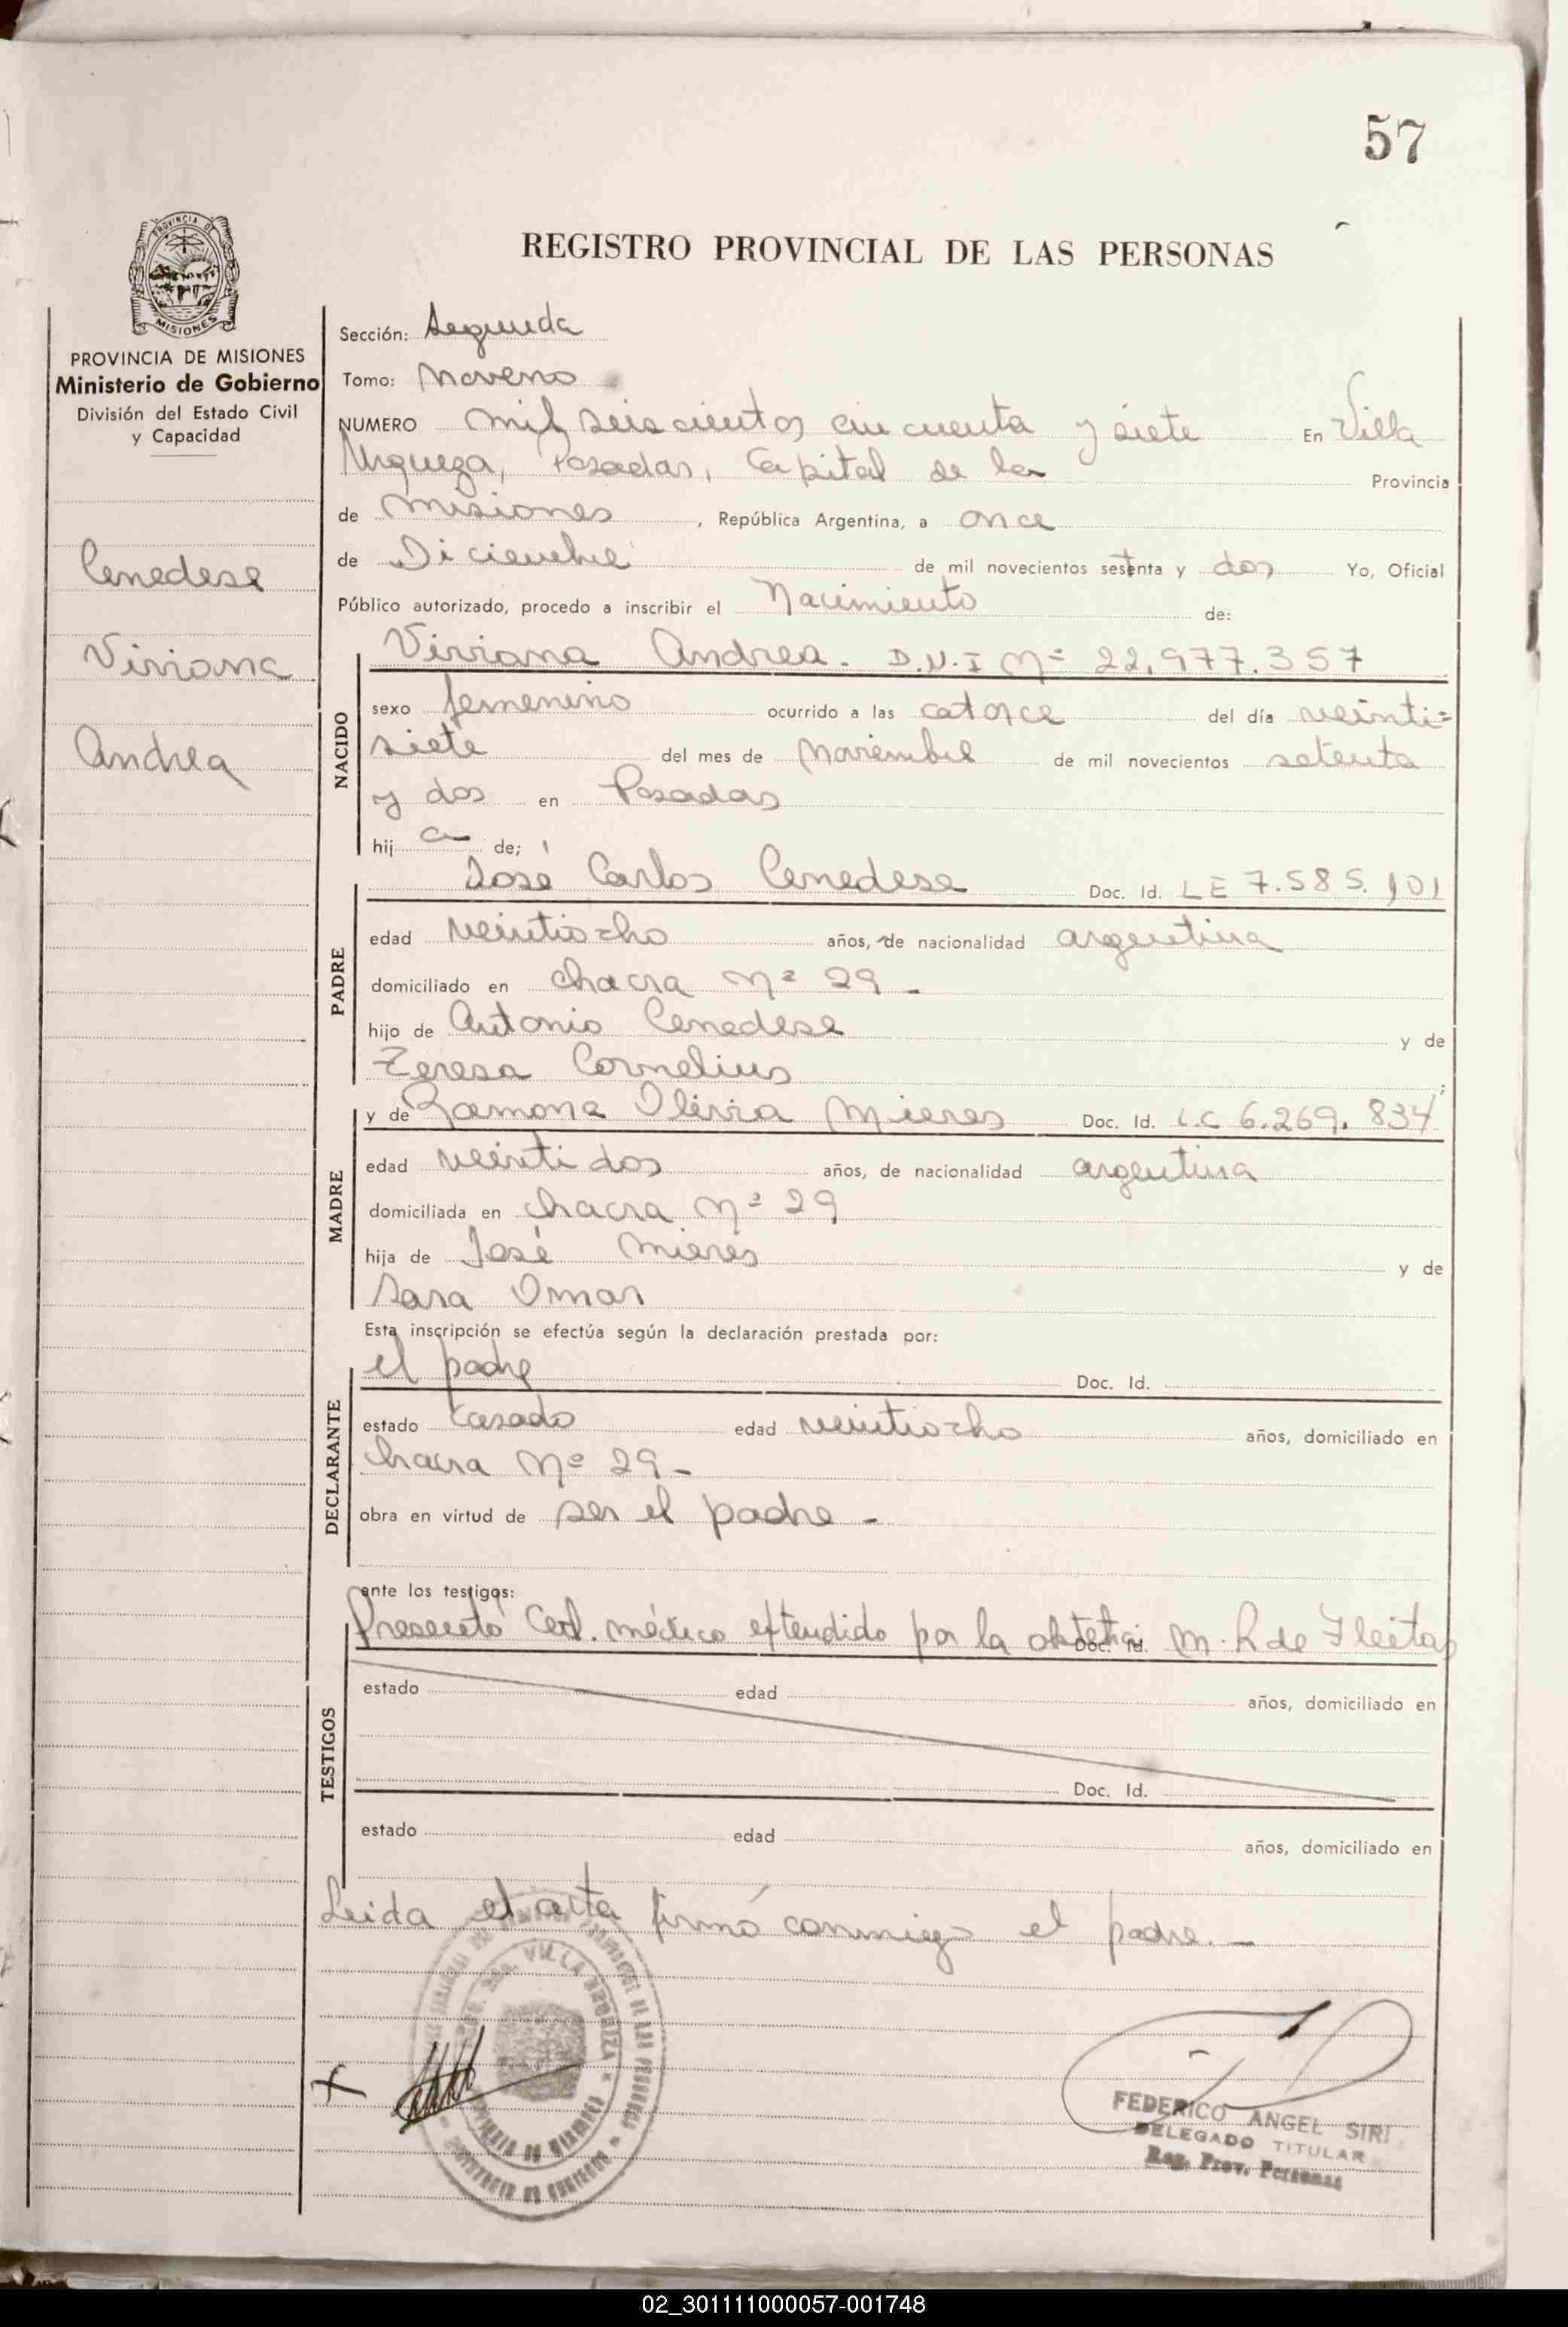 57
REGISTRO PROVINCIAL DE LAS PERSONAS
PROVINCIA DE MISIONES
PROVINCIA DE MISIONES
Ministerio de Gobierno
División del Estado Civil
y Capacidad
Cenedese
Viviana
Andrea
Sección: Segunda
Tomo: Noveno
NUMERO mil seiscientos cincuenta y siete En Villa
Urquiza, Posadas, Capital de la Provincia
de Misiones, República Argentina, a once
de Diciembre de mil novecientos setenta y dos Yo, Oficial
Público autorizado, procedo a inscribir el Nacimiento de:
NACIDO
Viviana Andrea. D.N.I Nº 22.977.357
sexo femenino ocurrido a las catorce del día veinti=
siete del mes de Noviembre de mil novecientos setenta
y dos en Posadas
hij a de;
PADRE
José Carlos Cenedese Doc. Id. LE 7.585.101
edad veintiocho años, de nacionalidad argentina
domiciliado en chacra Nº 29 -
hijo de Antonio Cenedese y de
Teresa Cornelius ;
MADRE
y de Ramona Olivia Mieres Doc. Id. L.C 6.269.834
edad veintidos años, de nacionalidad argentina
domiciliada en chacra Nº 29
hija de José Mieres y de
Sara Omar
Esta inscripción se efectúa según la declaración prestada por:
DECLARANTE
el padre Doc. Id.
estado casado edad veintiocho años, domiciliado en
chacra Nº 29 -
obra en virtud de ser el padre -
ante los testigos:
TESTIGOS
Presentó Cert. médico extendido por la obstetra M. R de Fleitas Doc. Id.
estado edad años, domiciliado en
Doc. Id.
estado edad años, domiciliado en
Leida el acta firmó conmigo el padre. -
VILLA URQUIZA
FEDERICO ANGEL SIRI
DELEGADO TITULAR
Reg. Prov. Personas
02_301111000057-001748